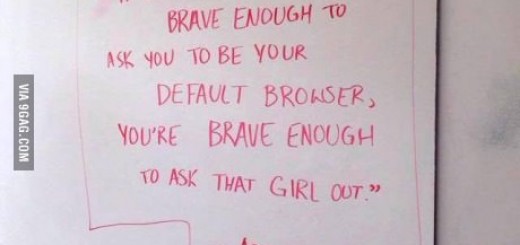 BRAVE ENOUGH TO
ASK YOU TO BE YOUR
DEFAULT BROWSER,
YOU'RE BRAVE ENOUGH
TO ASK THAT GIRL OUT."
VIA 9GAG.COM